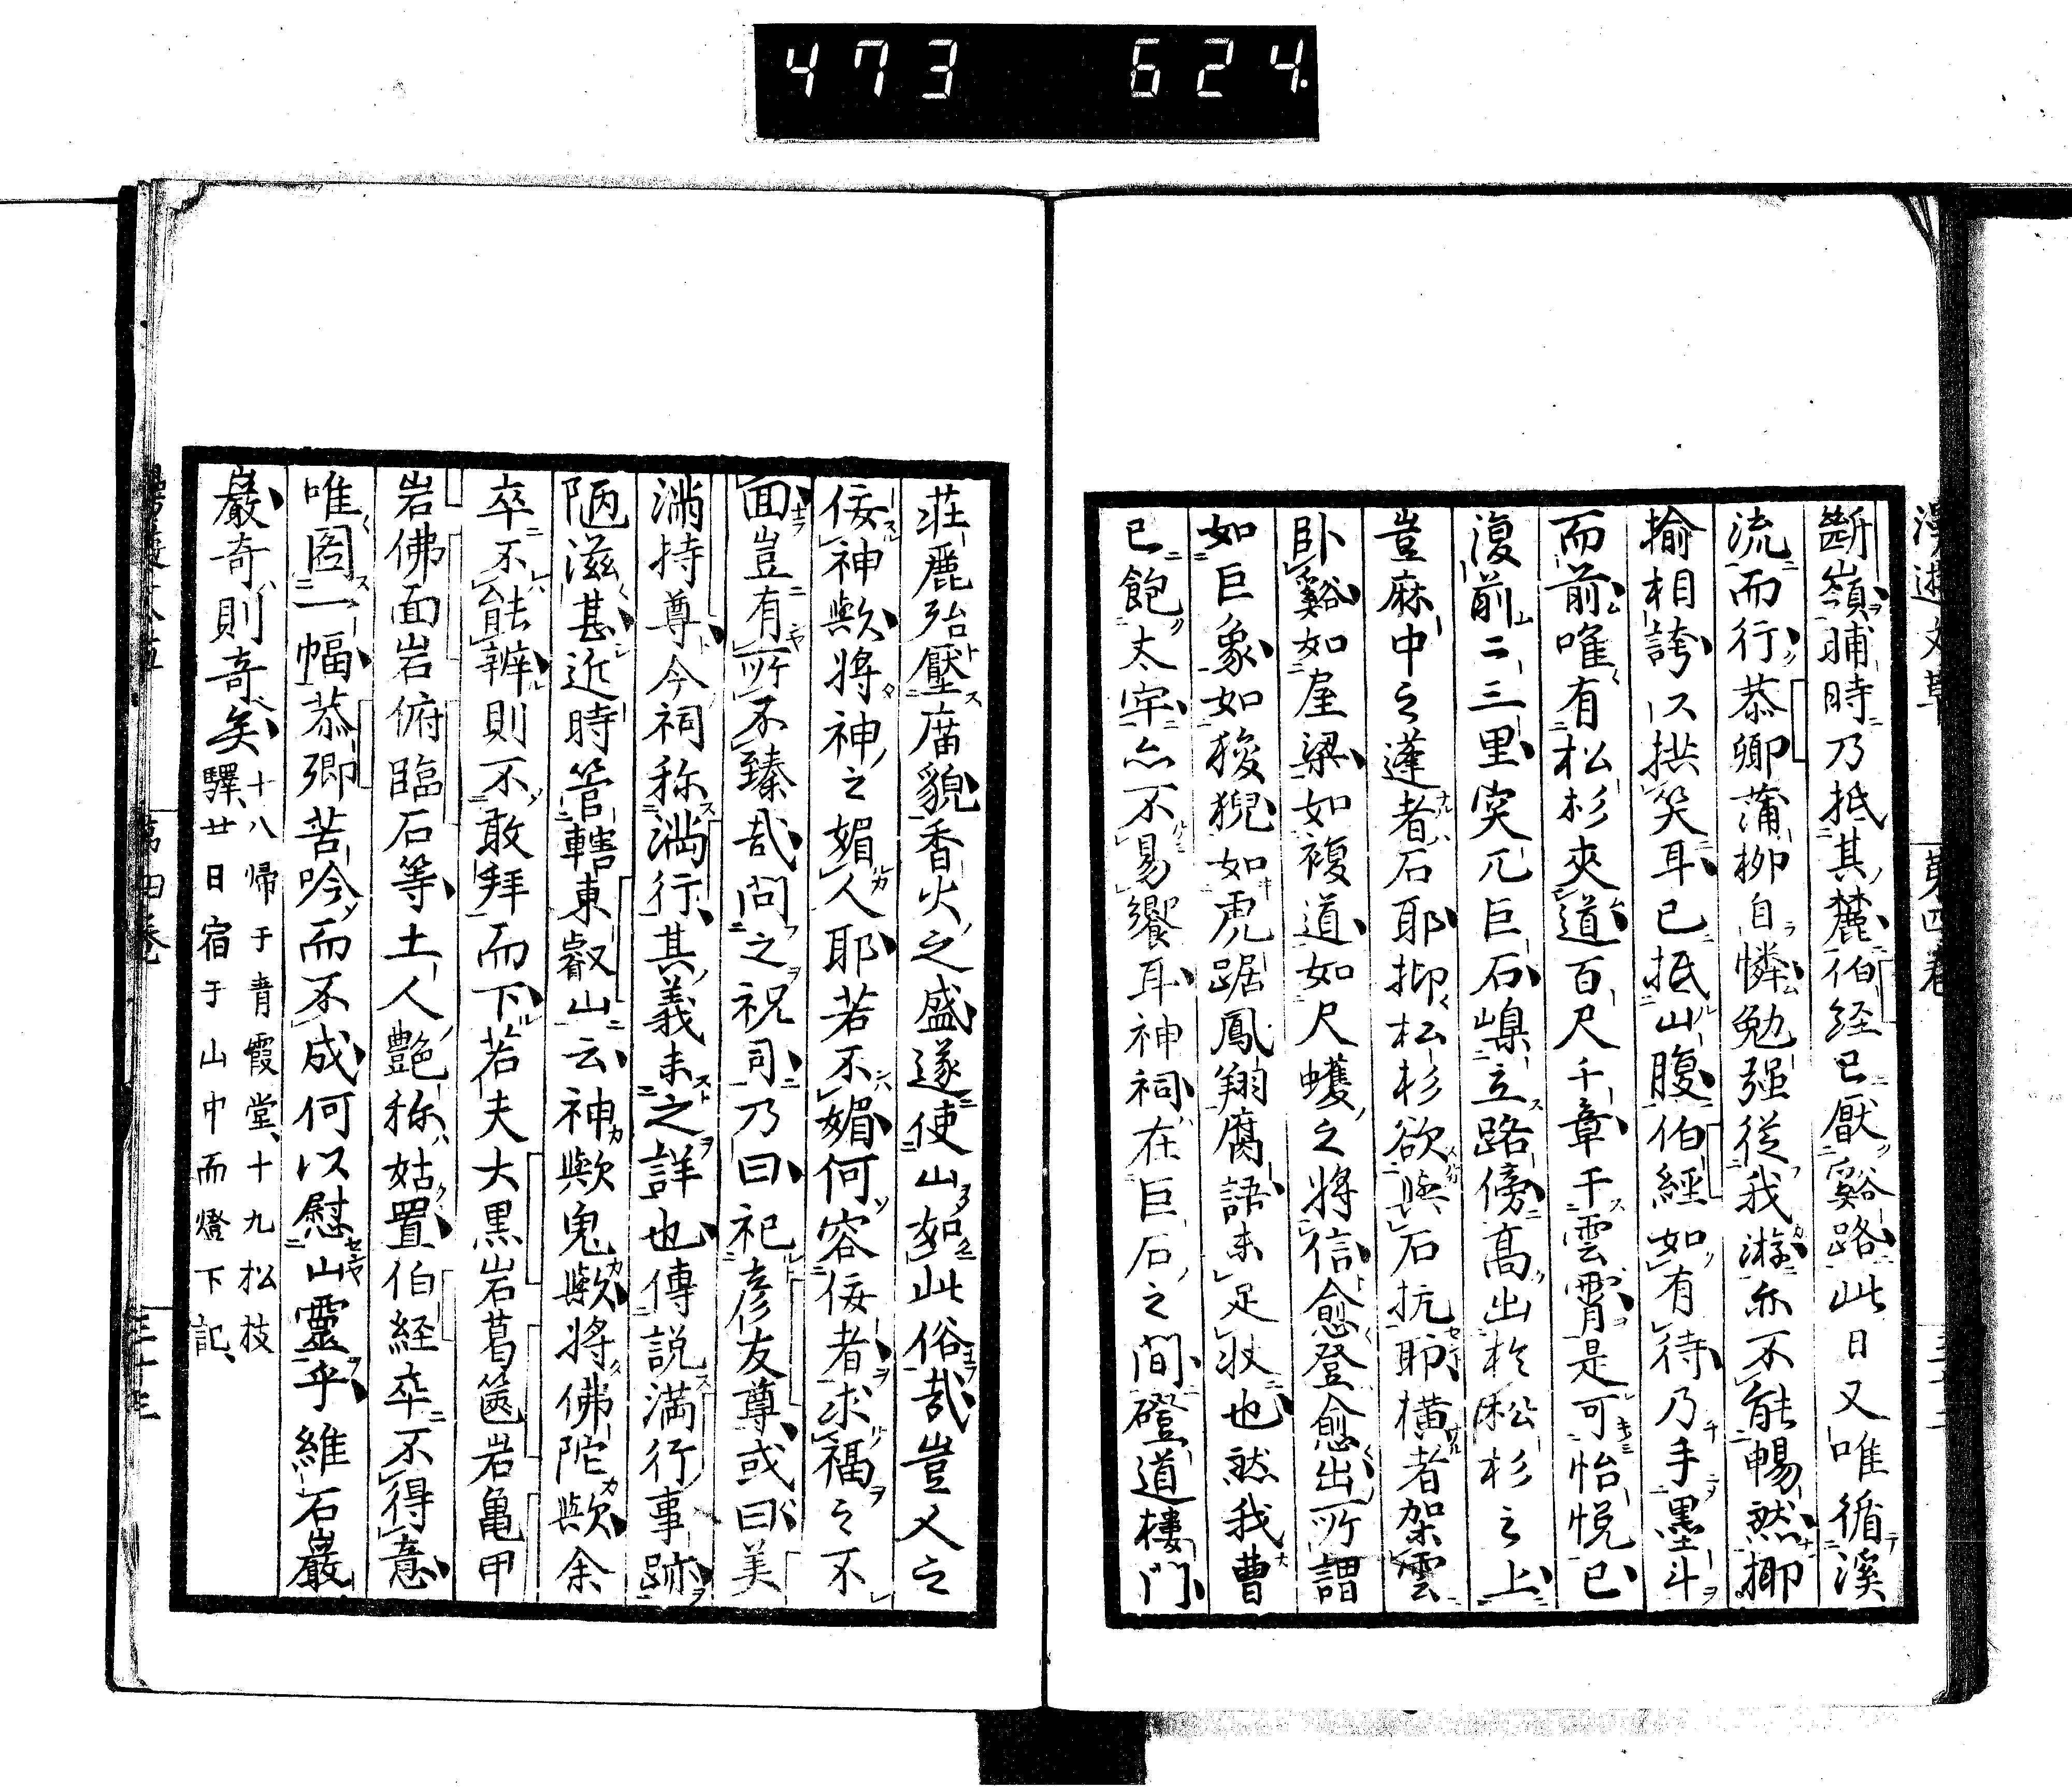 473 624
漫遊文草 第四巻
斷嶺晡時乃抵其麓伯経已厭谿路此日又唯循溪
流而行恭卿蒲柳自憐勉强従我游亦不能暢然揶
揄相誇以拱笑耳已抵山腹伯經如有待乃手墨斗
而前唯有松杉夾道百尺千章干雲霄是可怡悦已
復前二三里突兀巨石嵲立路傍高出於松杉之上
豈麻中之蓬者石耶抑松杉欲與石抗耶横者架雲
卧谿如屋梁如複道如尺蠖之将信愈登愈出所謂
如巨象如狻猊如虎踞鳳翔腐語未足状也然我曹
已飽太牢亦不易饗耳神祠在巨石之間磴道樓門
莊麗殆壓庿貌香火之盛遂使山如此俗哉豈又之
佞神歟將神之媚人耶若不媚何容佞者求福之不
面豈有所不臻哉問之祝司乃曰祀彦友尊或曰美
満持尊今祠称満行其義未之詳也傳説満行事跡
陋滋甚近時管轄東叡山云神歟鬼歟將佛陀歟余
卒不能辨則不敢拜而下若夫大黒岩葛篋岩亀甲
岩佛面岩俯臨石等土人艶称姑置伯経卒不得意
唯圖一幅恭卿苦吟而不成何以慰山靈乎維石巖
巖奇則奇矣十八帰于青霞堂十九松枝
驛廿日宿于山中而燈下記
第四巻